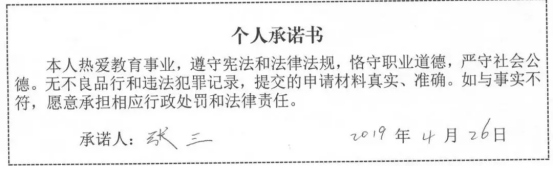 个人承诺书
本人热爱教育事业，遵守宪法和法律法规，恪守职业道德，严守社会公
德。无不良品行和违法犯罪记录，提交的申请材料真实、准确。如与事实不
符，愿意承担相应行政处罚和法律责任。
承诺人：张三 2019 年 4 月 26日